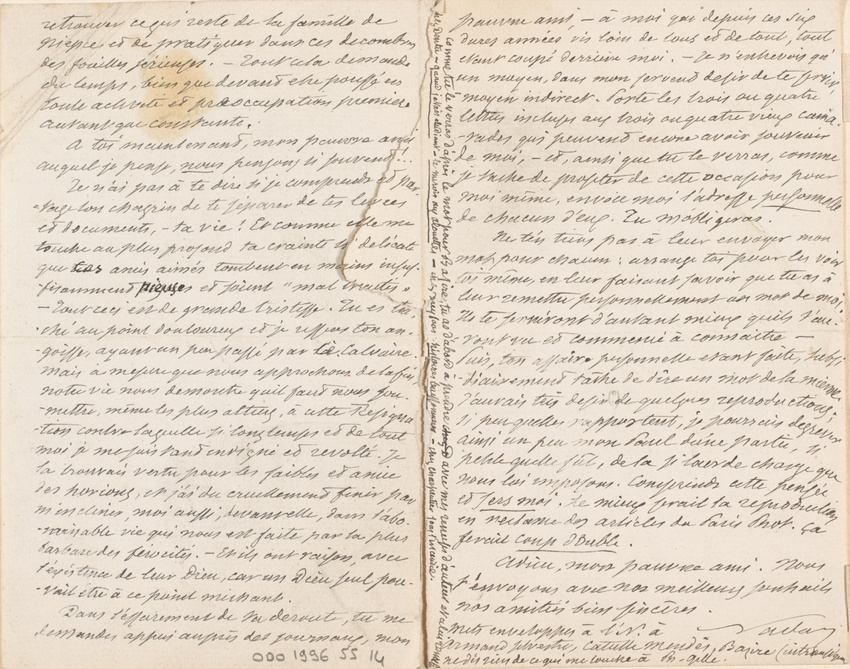 retrouver ce qui reste de la famille de
et de pratiquer dans ces decombres
des fouilles sérieuses. — Tout cela demande
du temps, bien que devant etre poussé en
toute activité et préoccupation premiere
autant que constante.
A toi maintenant, mon pauvre ami
auquel je pense, nous pensons si souvent!..
Je n'ai pas à te dire si je comprends et par-
-tage ton chagrin de te séparer de tes livres
et documents, — ta vie! Et comme elle me
touche au plus profond ta crainte si délicate
que tes amis aimés tombent en mains insuf-
fisamment pieuses et soient "mal traités"
— Tout ceci est de grande tristesse. Tu es tou-
-ché au point douloureux et je ressens ton an-
-goisse, ayant un peu passé par là calvaire.
mais à mesure que nous approchons de la fin,
notre vie nous demontre qu'il faut nous sou-
-mettre, même les plus altiers, à cette Resigna-
-tion contre laquelle si longtemps et de tout
moi je me suis tant indigné et revolté. Je
la trouvais vertu pour les faibles et amie
des horions, et j'ai du cruellement finir par
m'incliner, moi aussi, devant elle, dans l'abo-
-minable vie qui nous est faite par la plus
barbare des férocités. — Et ils ont raison, avec
l'existence de leur Dieu, car un Dieu seul pou-
-vait être à ce point mechant.
Dans l'effarement de ta deroute, tu me
demandes appui auprès des journaux, mon
000 1996 55 14
pauvre ami — à moi qui depuis ces six
dures années vis loin de tous et de tout, tout
étant coupé derrière moi. — Je n'entrevois qu'
un moyen, dans mon fervent desir de te servir,
moyen indirect. Porte les trois ou quatre
lettres incluses aux trois ou quatre vieux cama-
-rades qui peuvent encore avoir souvenir
de moi, — et, ainsi que tu le verras, comme
je tache de profiter de cette occasion pour
moi même, envoie moi l'adresse personnelle
de chacun d'eux. Tu m'obligeras.
Ne t'en tiens pas à leur envoyer mon
mot pour chacun: arrange toi pour les voir
toi même, en leur faisant savoir que tu as à
leur remettre personnellement un mot de moi.
Ils te serviront d'autant mieux qu'ils t'au-
-ront vu et commencé à connaitre —
Puis, ton affaire personnelle etant faite, subsi-
diairement tâche de dire un mot de la mienne.
J'aurais très desir de quelques reproductions.
Si peu qu'elles rapportent, je pourrais dégrever
ainsi un peu mon Paul d'une partie, si
petite qu'elle fût, de la si lourde charge que
nous lui imposons. Comprends cette pensée
et sers moi. Le mieux serait la reproduction
en reclame des articles du Paris Phot. Ça
ferait coup double.
Adieu, mon pauvre ami. Nous
t'envoyons avec nos meilleurs souhaits
nos amitiés bien sincères.
Nadar
Mets enveloppes à l'N. à
Armand Silvestre, Catulle Mendès, Bazire (intransigeant
ne dis rien de ce qui me touche à
comme tu le verras d'après le mot pour Bazire, tu as d'abord à